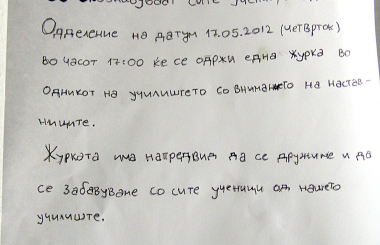 сите
Одделение на датум 17.05.2012 (четврток)
во часот 17:00 ќе се одржи една журка во
одникот на училиштето со вниманието на настав-
ниците.
Журката има напредвид да се дружиме и да
се забавуваме со сите ученици од нашето
училиште.